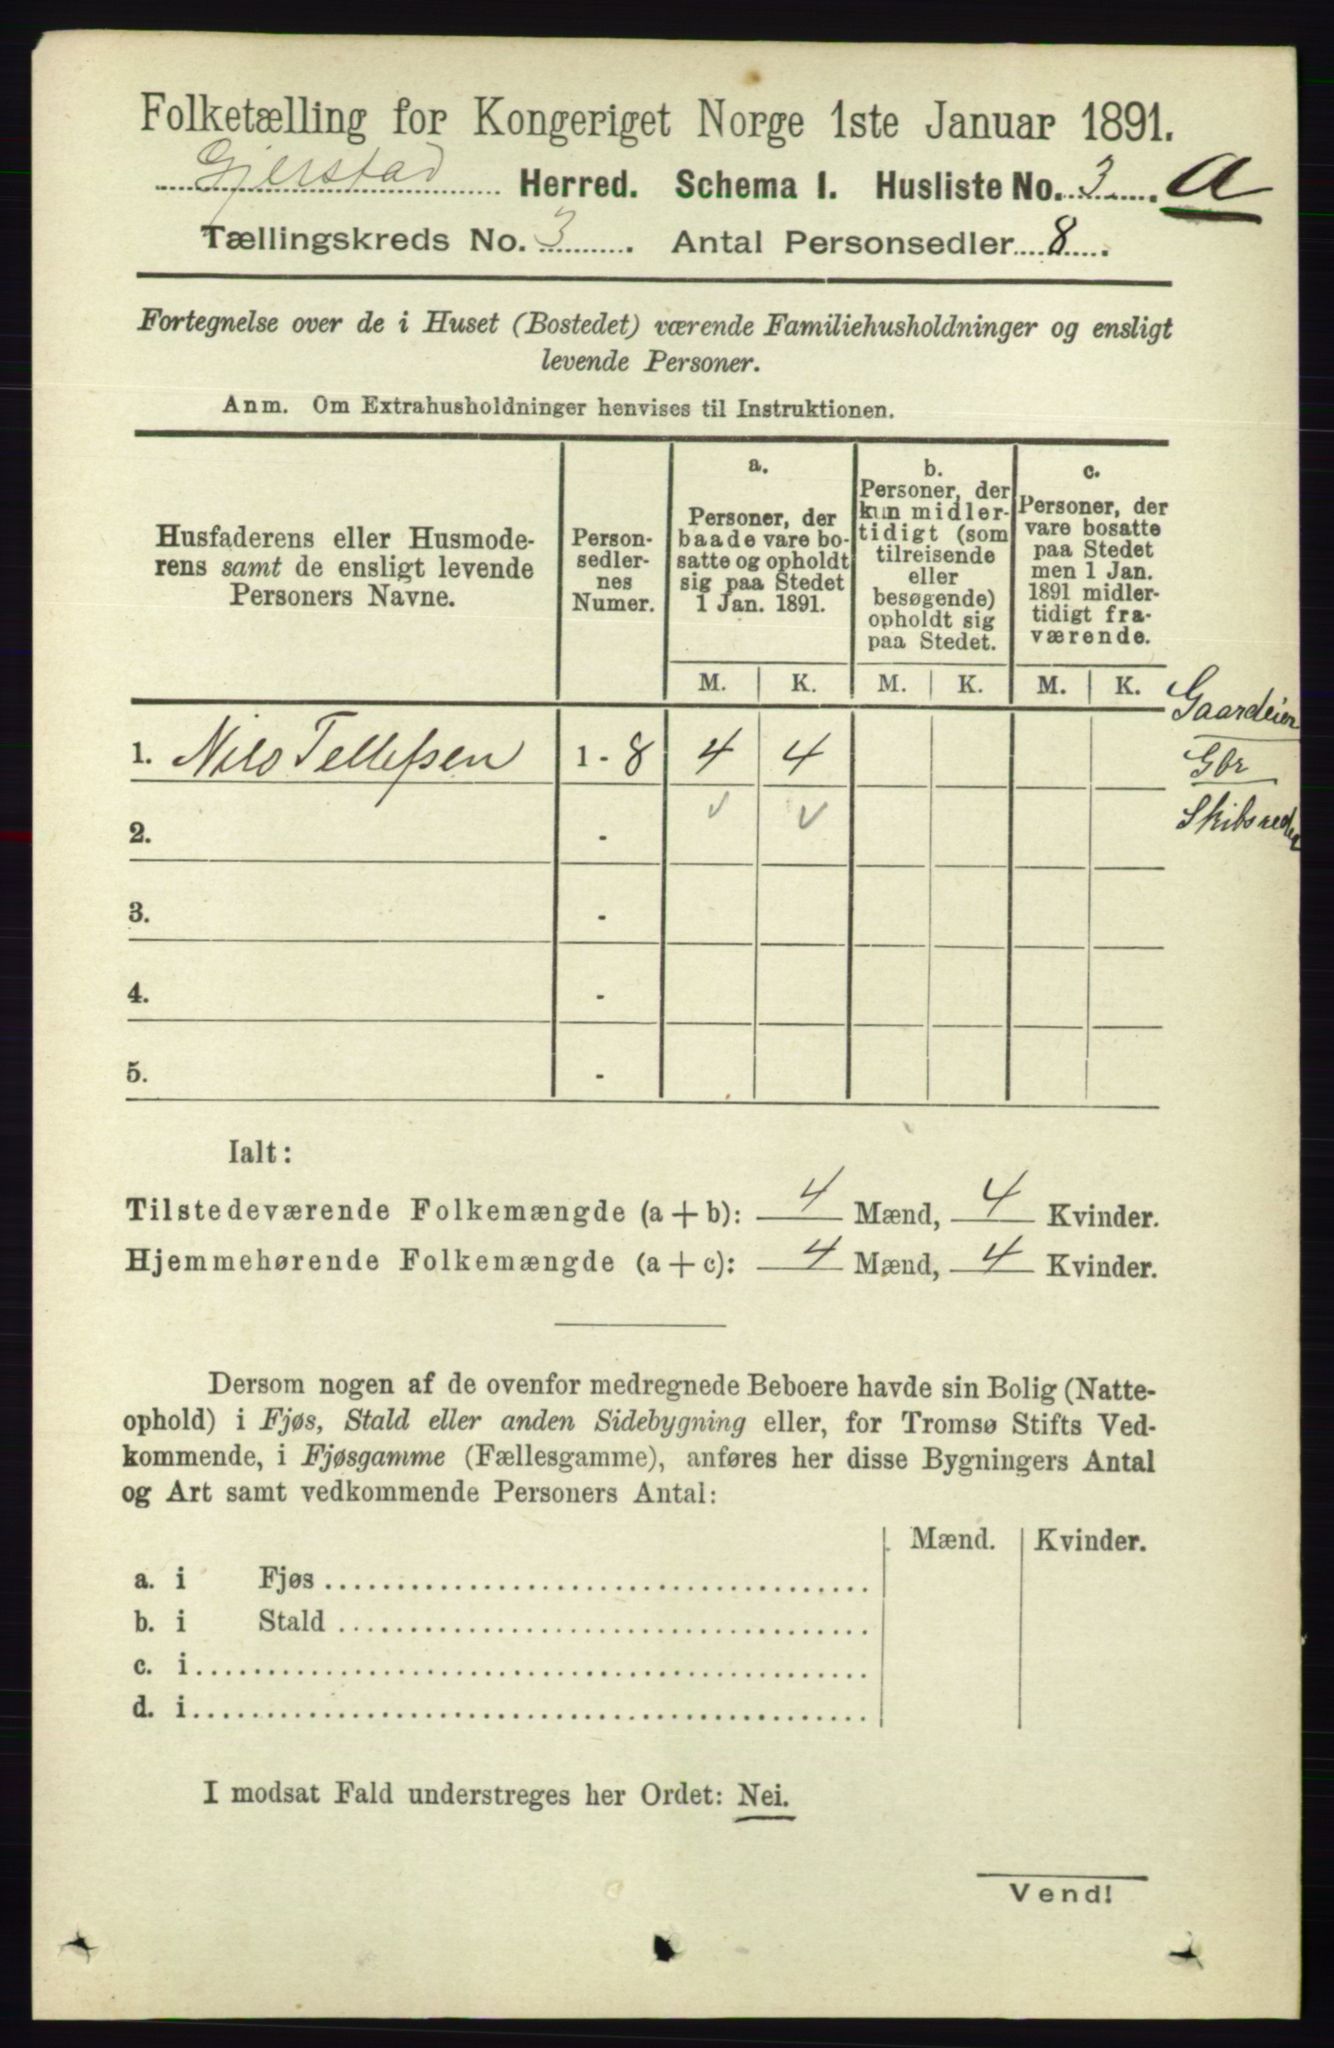 Folketælling for Kongeriget Norge 1ste Januar 1891.
Gjerstad Herred. Schema 1. Husliste No. 3 a
Tællingskreds No. 3. Antal Personsedler 8.
Fortegnelse over de i Huset (Bostedet) værende Familiehusholdninger og ensligt
levende Personer.
Anm. Om Extrahusholdninger henvises til Instruktionen.
Husfaderens eller Husmode-
rens samt de ensligt levende
Personers Navne.
Person-
sedler-
nes
Numer.
a.
Personer, der
baade vare bo-
satte og opholdt
sig paa Stedet
1 Jan. 1891.
b.
Personer, der
kun midler-
tidigt (som
tilreisende
eller
besøgende)
opholdt sig
paa Stedet.
c.
Personer, der
vare bosatte
paa Stedet
men 1 Jan.
1891 midler-
tidigt fra-
værende.
M. K. M. K. M. K.
Gaardeier
1. Nils Tellefsen 1 - 8 4 4
Gbr
Skibsreder
2. -
3. -
4. -
5. -
Ialt:
Tilstedeværende Folkemængde (a + b): 4 Mænd, 4 Kvinder.
Hjemmehørende Folkemængde (a + c): 4 Mænd, 4 Kvinder.
Dersom nogen af de ovenfor medregnede Beboere havde sin Bolig (Natte-
ophold) i Fjøs, Stald eller anden Sidebygning eller, for Tromsø Stifts Ved-
kommende, i Fjøsgamme (Fællesgamme), anføres her disse Bygningers Antal
og Art samt vedkommende Personers Antal:
Mænd. Kvinder.
a. i Fjøs
b. i Stald
c. i
d. i
I modsat Fald understreges her Ordet: Nei.
Vend!